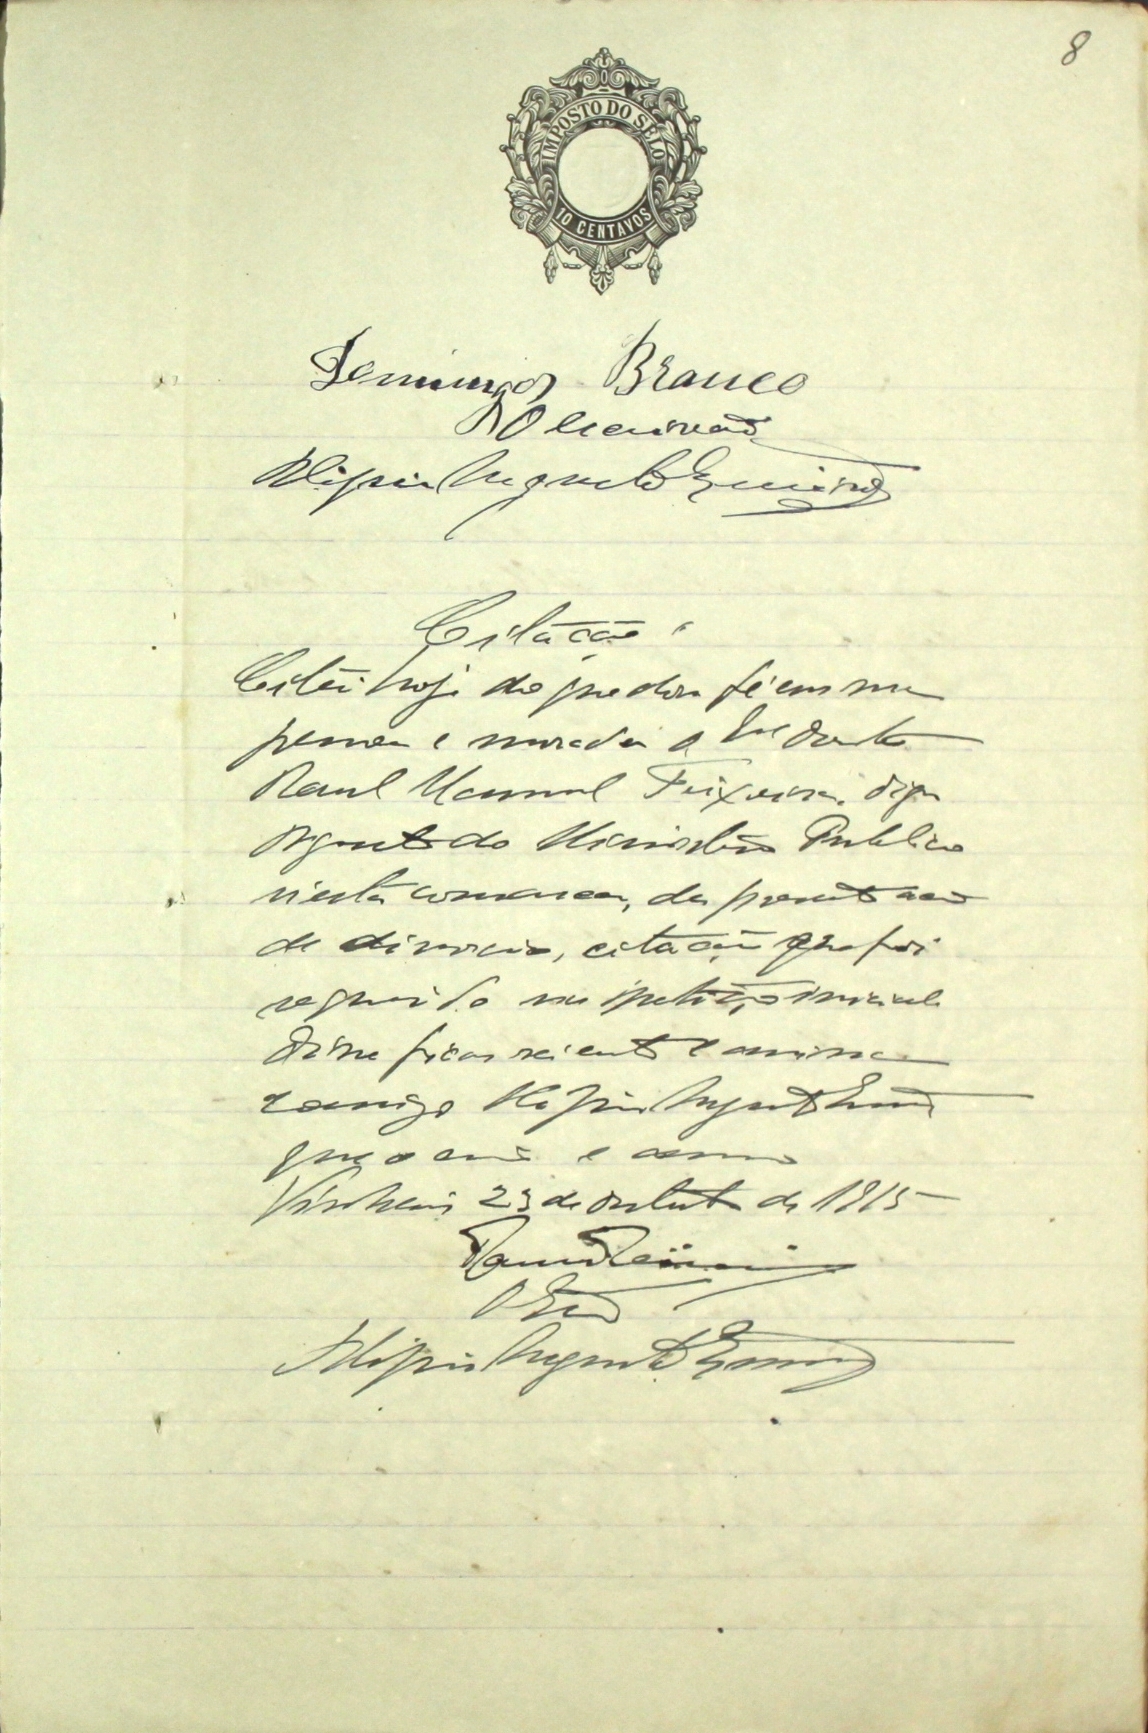 8
IMPOSTO DO SELO
10 CENTAVOS
Domingos Branco
O Escrivão
Citação
Citei hoje do que dou fé em sua
pessoa e morada o Doutor
Raul Manuel Teixeira, digno
Agente do Ministerio Publico
n'esta comarca, da presente acão
de divorcio, citação que foi
requerida na petição inicial
Disse ficar sciente e assina
comigo
que o
Vinhais 23 de Outubro de 1915
Raul Teixeira
O Esc